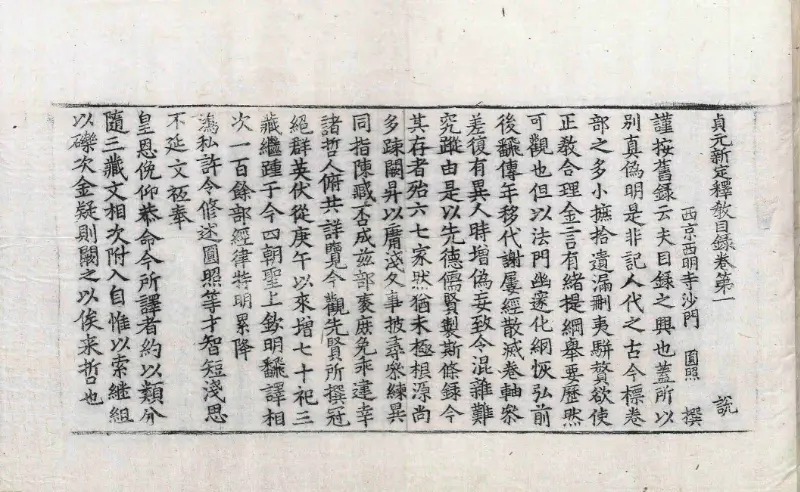 貞元新定釋教目錄卷第一
說
西京西明寺沙門 圓照 撰
謹按舊錄云夫目錄之興也蓋所以
別真偽明是非記人代之古今標卷
部之多小摭拾遺漏刪夷駢贅欲使
正教合理金言有緒提綱舉要歷然
可觀也但以法門幽邃化網恢弘前
後翻傳年移代謝屢經散滅卷軸參
差復有異人時增偽妄致令混雜難
究蹤由是以先德儒賢製斯條錄今
其存者殆六七家然猶未極根源尚
多踈闕昇以庸淺久事披尋參練異
同指陳臧否成茲部裘庶免乖違幸
諸哲人俯共詳覽今觀先賢所撰冠
絕群英伏從庚午以來增七十祀三
藏繼踵于今四朝聖上欽明翻譯相
次一百餘部經律特明累降
鴻私許令修述圓照等才智短淺思
不延文祗奉
皇恩俛仰恭命今所譯者約以類分
隨三藏文相次附入自惟以索繼組
以礫次金疑則闕之以俟来哲也